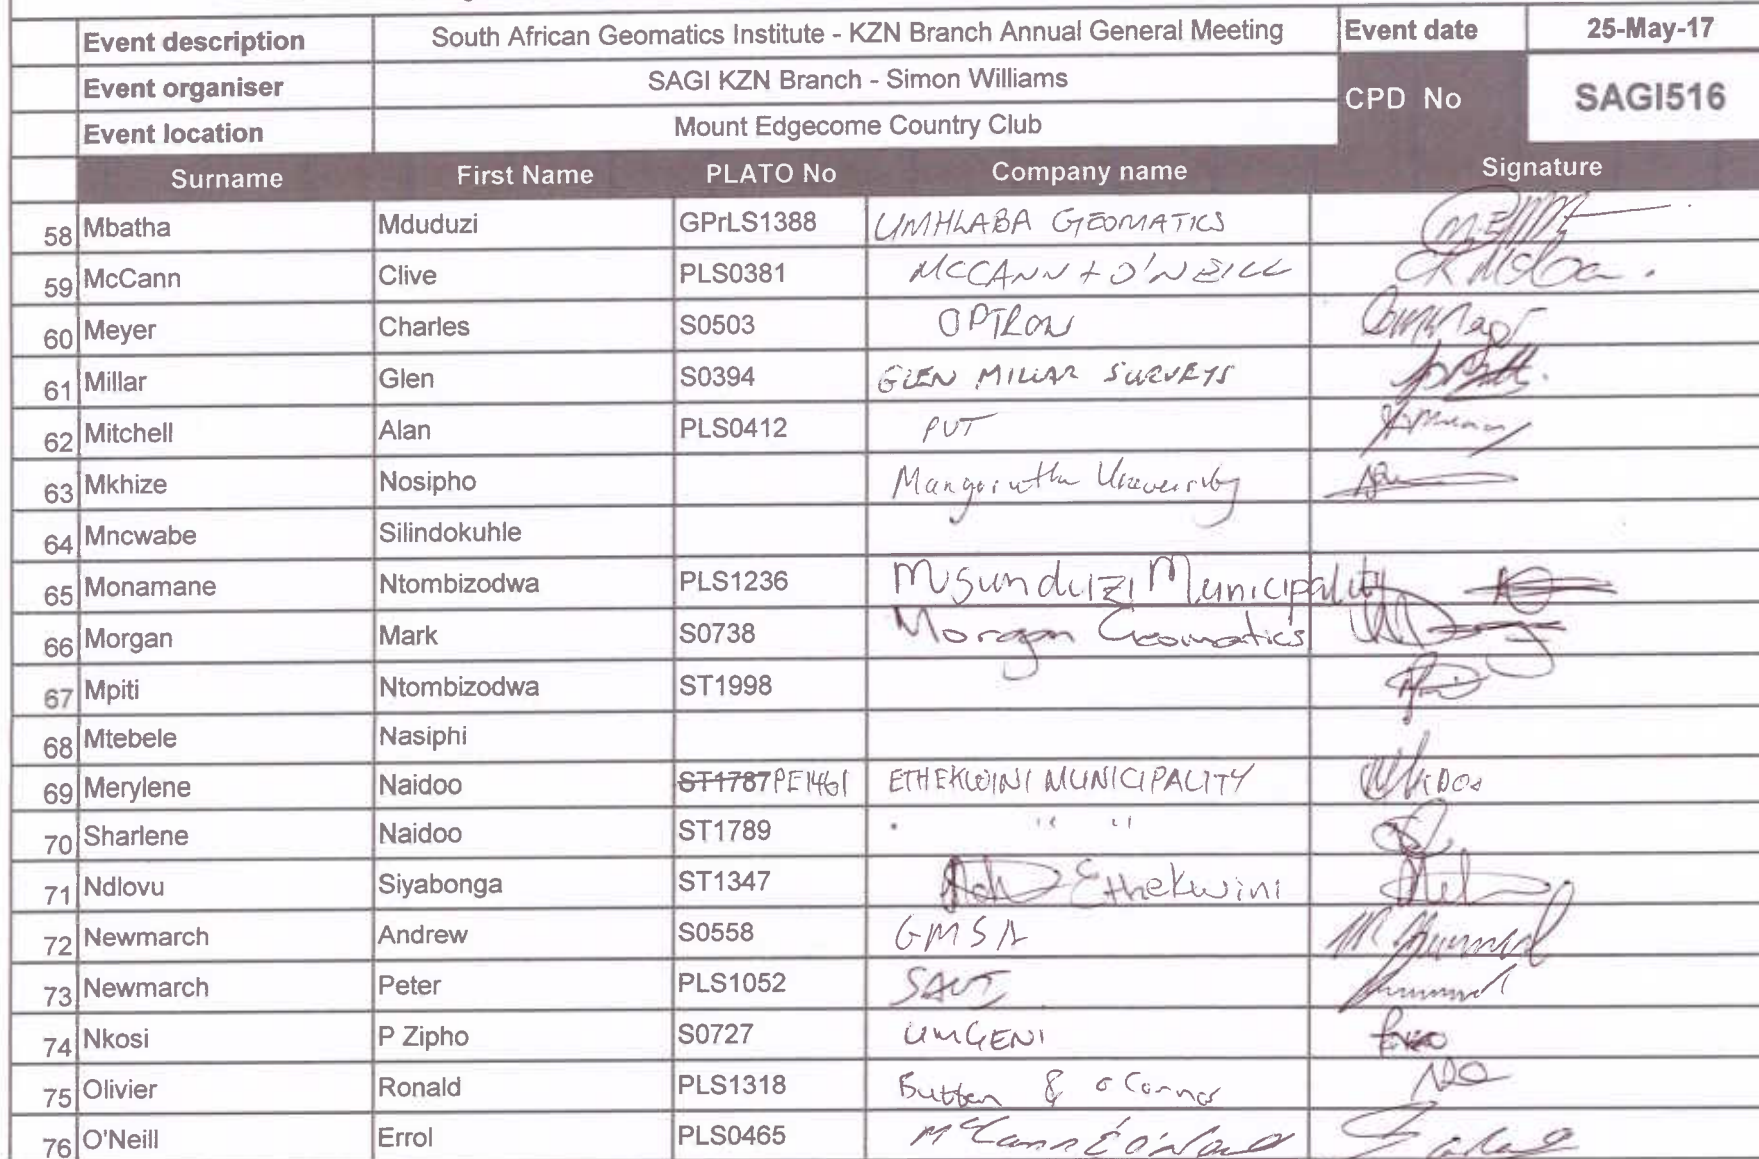 Event description South African Geomatics Institute - KZN Branch Annual General Meeting Event date 25-May-17
Event organiser SAGI KZN Branch - Simon Williams CPD No SAGI516
Event location Mount Edgecome Country Club
Surname First Name PLATO No Company name Signature
58 Mbatha Mduduzi GPrLS1388 UMHLABA GEOMATICS
59 McCann Clive PLS0381 MCCANN + O'NEILL
60 Meyer Charles S0503 OPTRON
61 Millar Glen S0394 GLEN MILLAR SURVEYS
62 Mitchell Alan PLS0412 PVT
63 Mkhize Nosipho University
64 Mncwabe Silindokuhle
65 Monamane Ntombizodwa PLS1236 Msunduzi Municipality
66 Morgan Mark S0738 Morgan Geomatics
67 Mpiti Ntombizodwa ST1998
68 Mtebele Nasiphi
69 Merylene Naidoo ST1787 PE1461 ETHEKWINI MUNICIPALITY
70 Sharlene Naidoo ST1789 " "
71 Ndlovu Siyabonga ST1347 Ethekwini
72 Newmarch Andrew S0558 GMSA
73 Newmarch Peter PLS1052
74 Nkosi P Zipho S0727 UMGENI
75 Olivier Ronald PLS1318 & o Connor
76 O'Neill Errol PLS0465